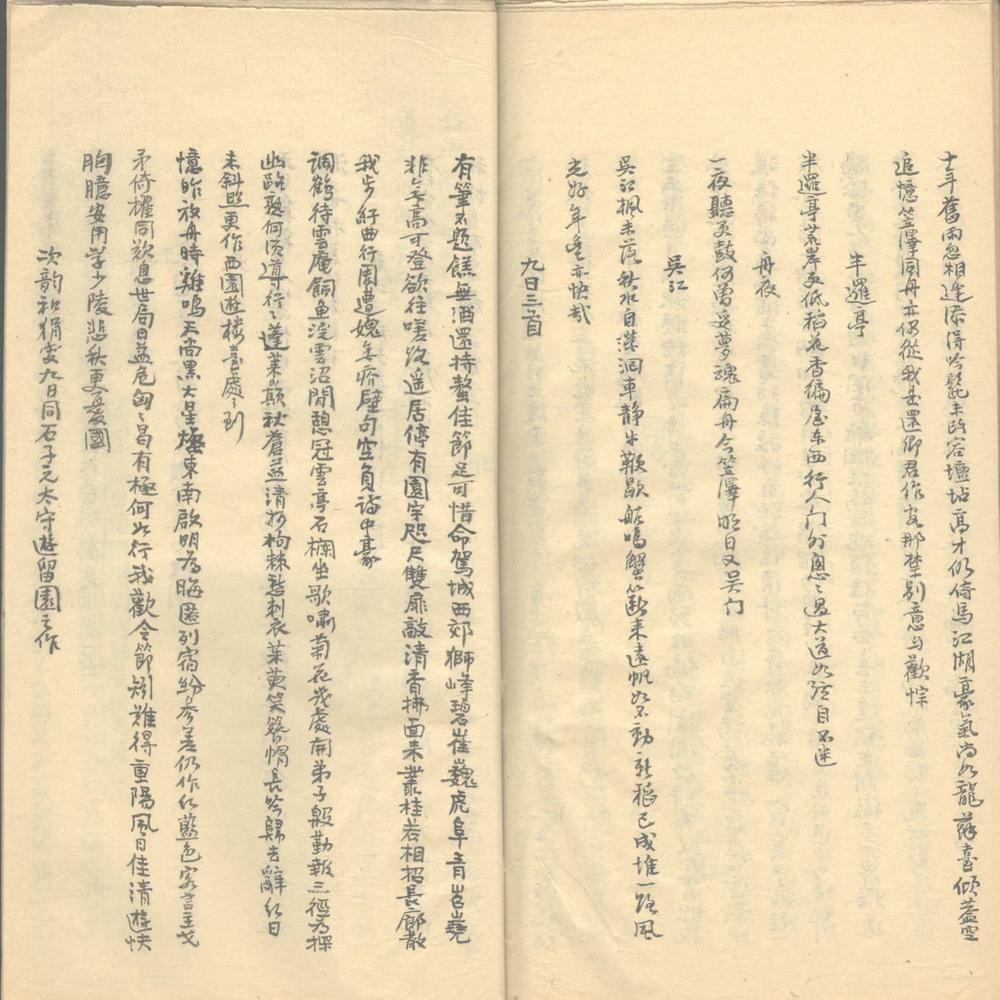 十年舊雨忽相逢添得吟髭未改容壇坫高才仍倚馬江湖豪氣尚如龍蘇臺傾蓋空
追憶笠澤同舟亦仍從我是還鄉君作客那禁別意与歡悰
半邏亭
半邏亭荒岸更低稻花香徧屋东西行人门外怱〻過大道如弦自不迷
舟夜
一夜聽更鼓何曾妥夢魂扁舟今笠澤明日又吴门
吴江
吴江枫未落秋水自瀠洄車静牛鞅歇船鳴蟹籪来遠帆如不動新稻已成堆一路風
光好年豐亦快哉
九日三首
有筆不題餻無酒還持螯佳節足可惜命駕城西郊獅峰碧崔巍虎阜青岧嶤
非無高可登欲往嗟路遥居停有園宇咫尺雙扉敲清香拂面来叢桂若相招長廊散
我步紆曲行周遭媿無疥壁句空負詩中豪
調鶴待雲庵飼魚浣雲沼閒憩冠雲亭石欄坐歌嘯菊花幾處開弟子殷勤報三徑為探
幽路熟何須導行〻蓬萊顛秋蒼益清抄枸棘愁刺衣茱萸笑簪帽長吟歸去辭红日
未斜照更作西園遊楼臺處〻到
憶昨放舟時雞鳴天尚黑大星燦東南啟明為晦匿列宿紛参差仍作红藍色客言主戈
矛倚櫂同歎息世局日益危匈〻曷有極何如行我歡令節矧難得重陽風日佳清遊快
胸臆安用学少陵悲秋更憂國
次韵和狷叟九日同石子元太守遊留園之作